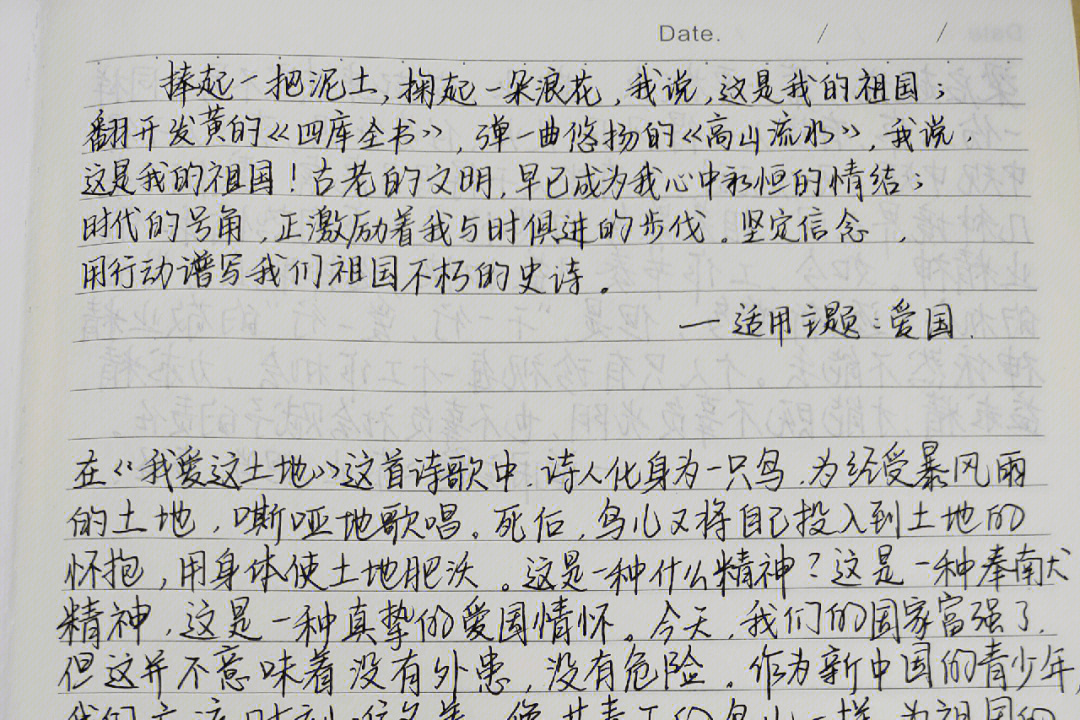 Date. / /
捧起一把泥土，掬起一朵浪花，我说，这是我的祖国；
翻开发黄的《四库全书》，弹一曲悠扬的《高山流水》，我说，
这是我的祖国！古老的文明，早已成为我心中永恒的情结；
时代的号角，正激励着我与时俱进的步伐。坚定信念，
用行动谱写我们祖国不朽的史诗。
—适用主题：爱国.
在《我爱这土地》这首诗歌中，诗人化身为一只鸟，为经受暴风雨
的土地，嘶哑地歌唱。死后，鸟儿又将自己投入到土地的
怀抱，用身体使土地肥沃。这是一种什么精神？这是一种奉献
精神，这是一种真挚的爱国情怀。今天，我们的国家富强了，
但这并不意味着没有外患，没有危险。作为新中国的青少年，